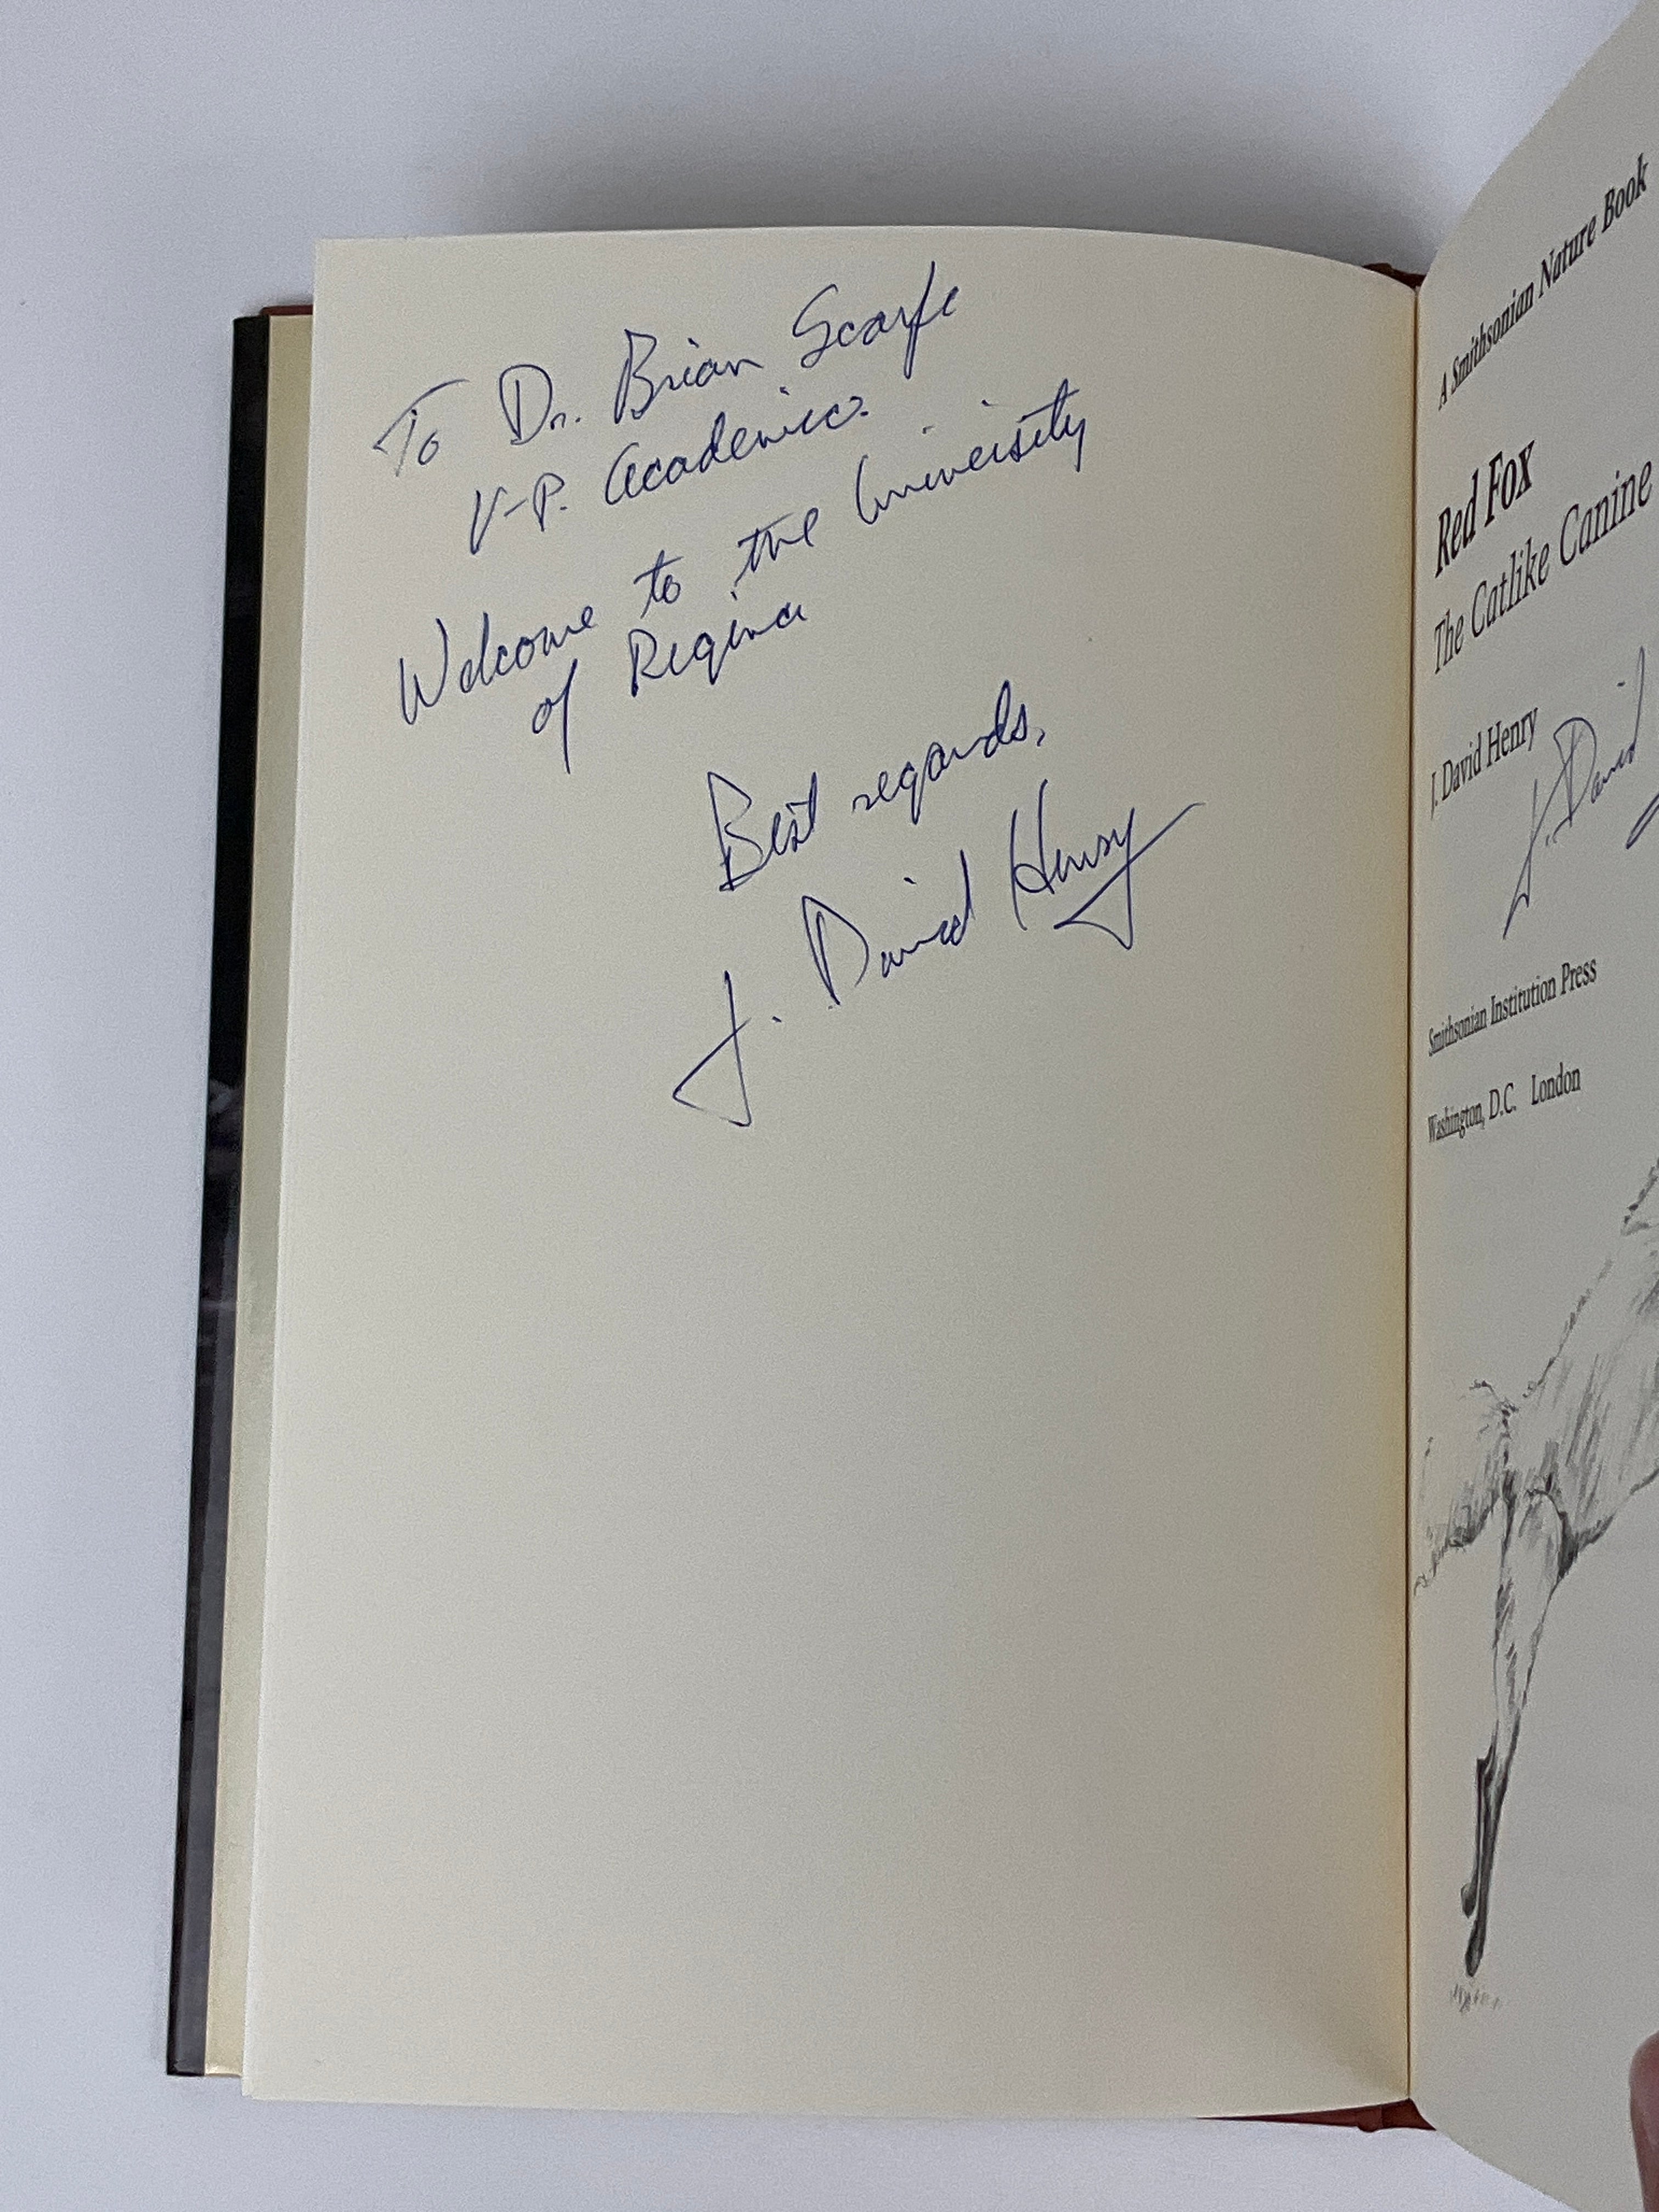 To Dr. Brian Scarfe
V-P. Academic.
Welcome to the University
of Regina
Best regards,
J. David Henry
A Smithsonian Nature Book
Red Fox
The Catlike Canine
J. David Henry
J. David
Smithsonian Institution Press
Washington, D.C. London